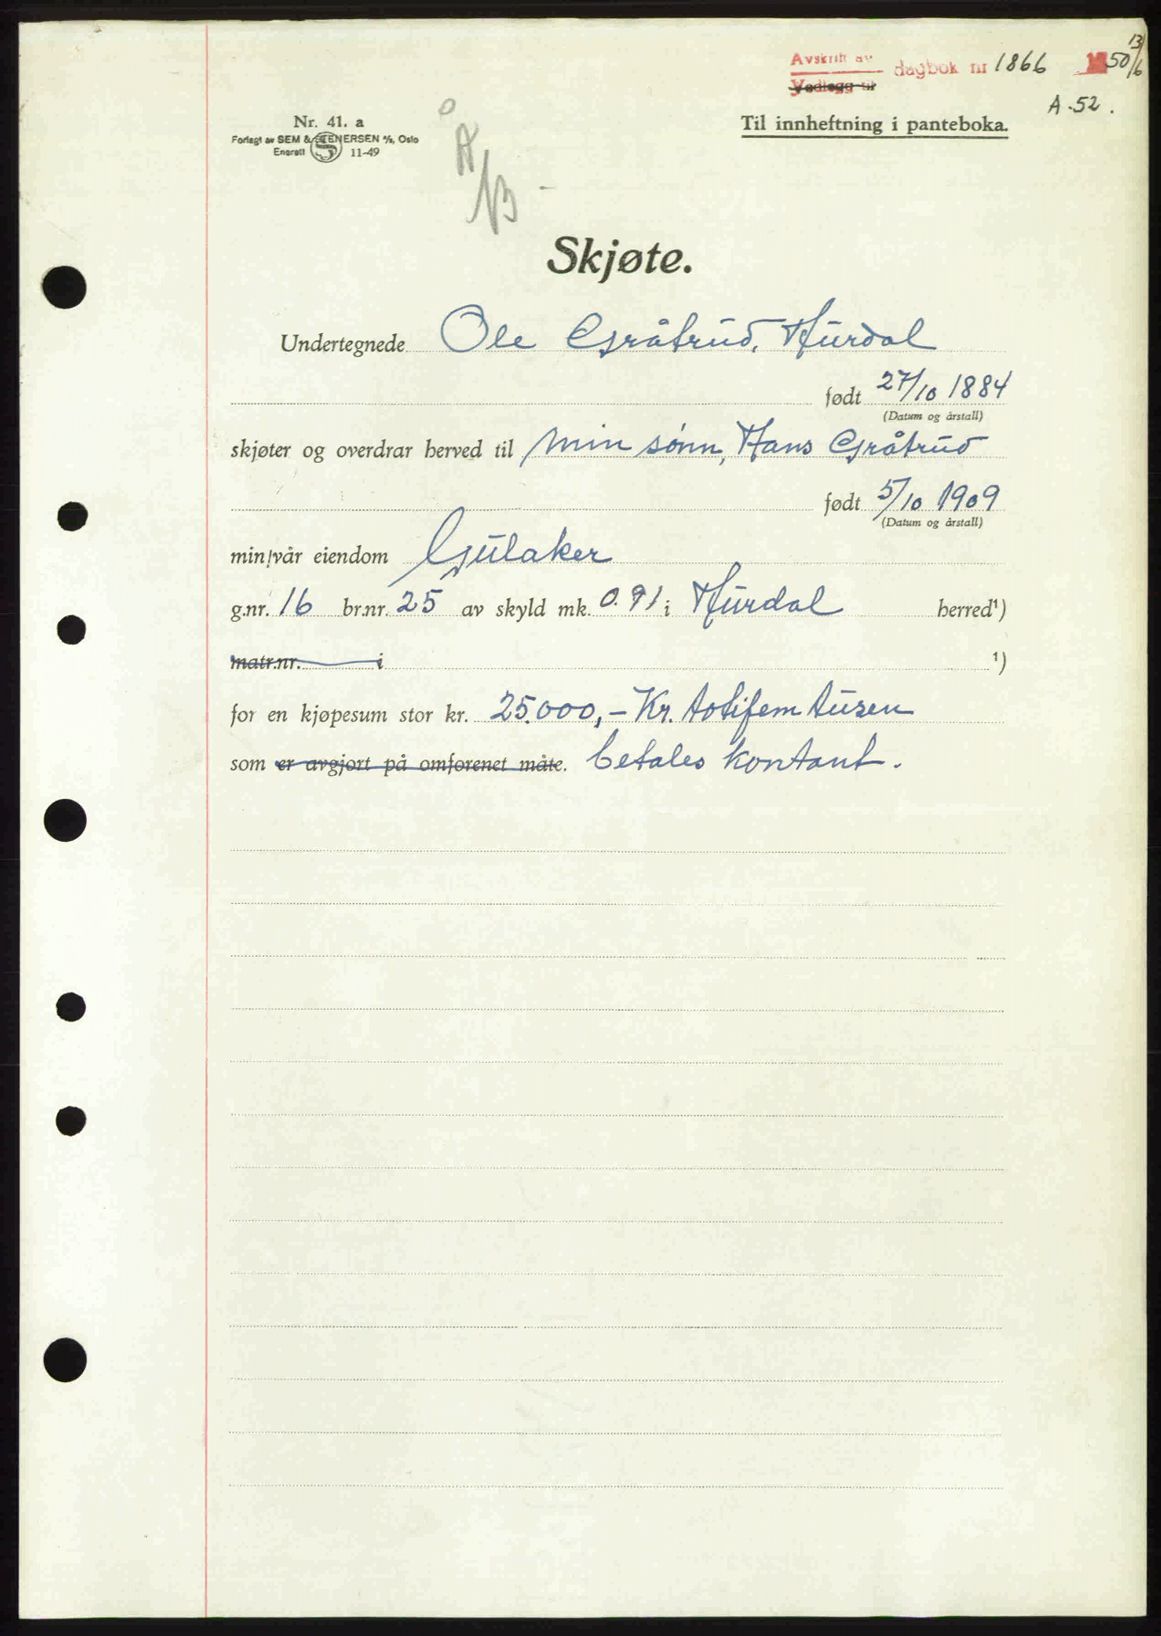 Avskrift av dagbok nr 1866 1950 13/6
Vedlegg nr
A-52.
Nr. 41. a
Til innheftning i panteboka.
Forlagt av SEM & STENERSEN A/S, Oslo
Enerett 11-49
A
NB
Skjøte.
Undertegnede Ole Gråtrud, Hurdal
født 27/10 1884
(Datum og årstall)
skjøter og overdrar herved til min sønn, Hans Gråtrud
født 5/10 1909
(Datum og årstall)
min/vår eiendom Gulaker
g.nr. 16 br.nr. 25 av skyld mk. 0.91 i Hurdal herred¹)
matr.nr. i ¹)
for en kjøpesum stor kr. 25.000,- Kr. totifem tusen
som er avgjort på omforenet måte. betales kontant.